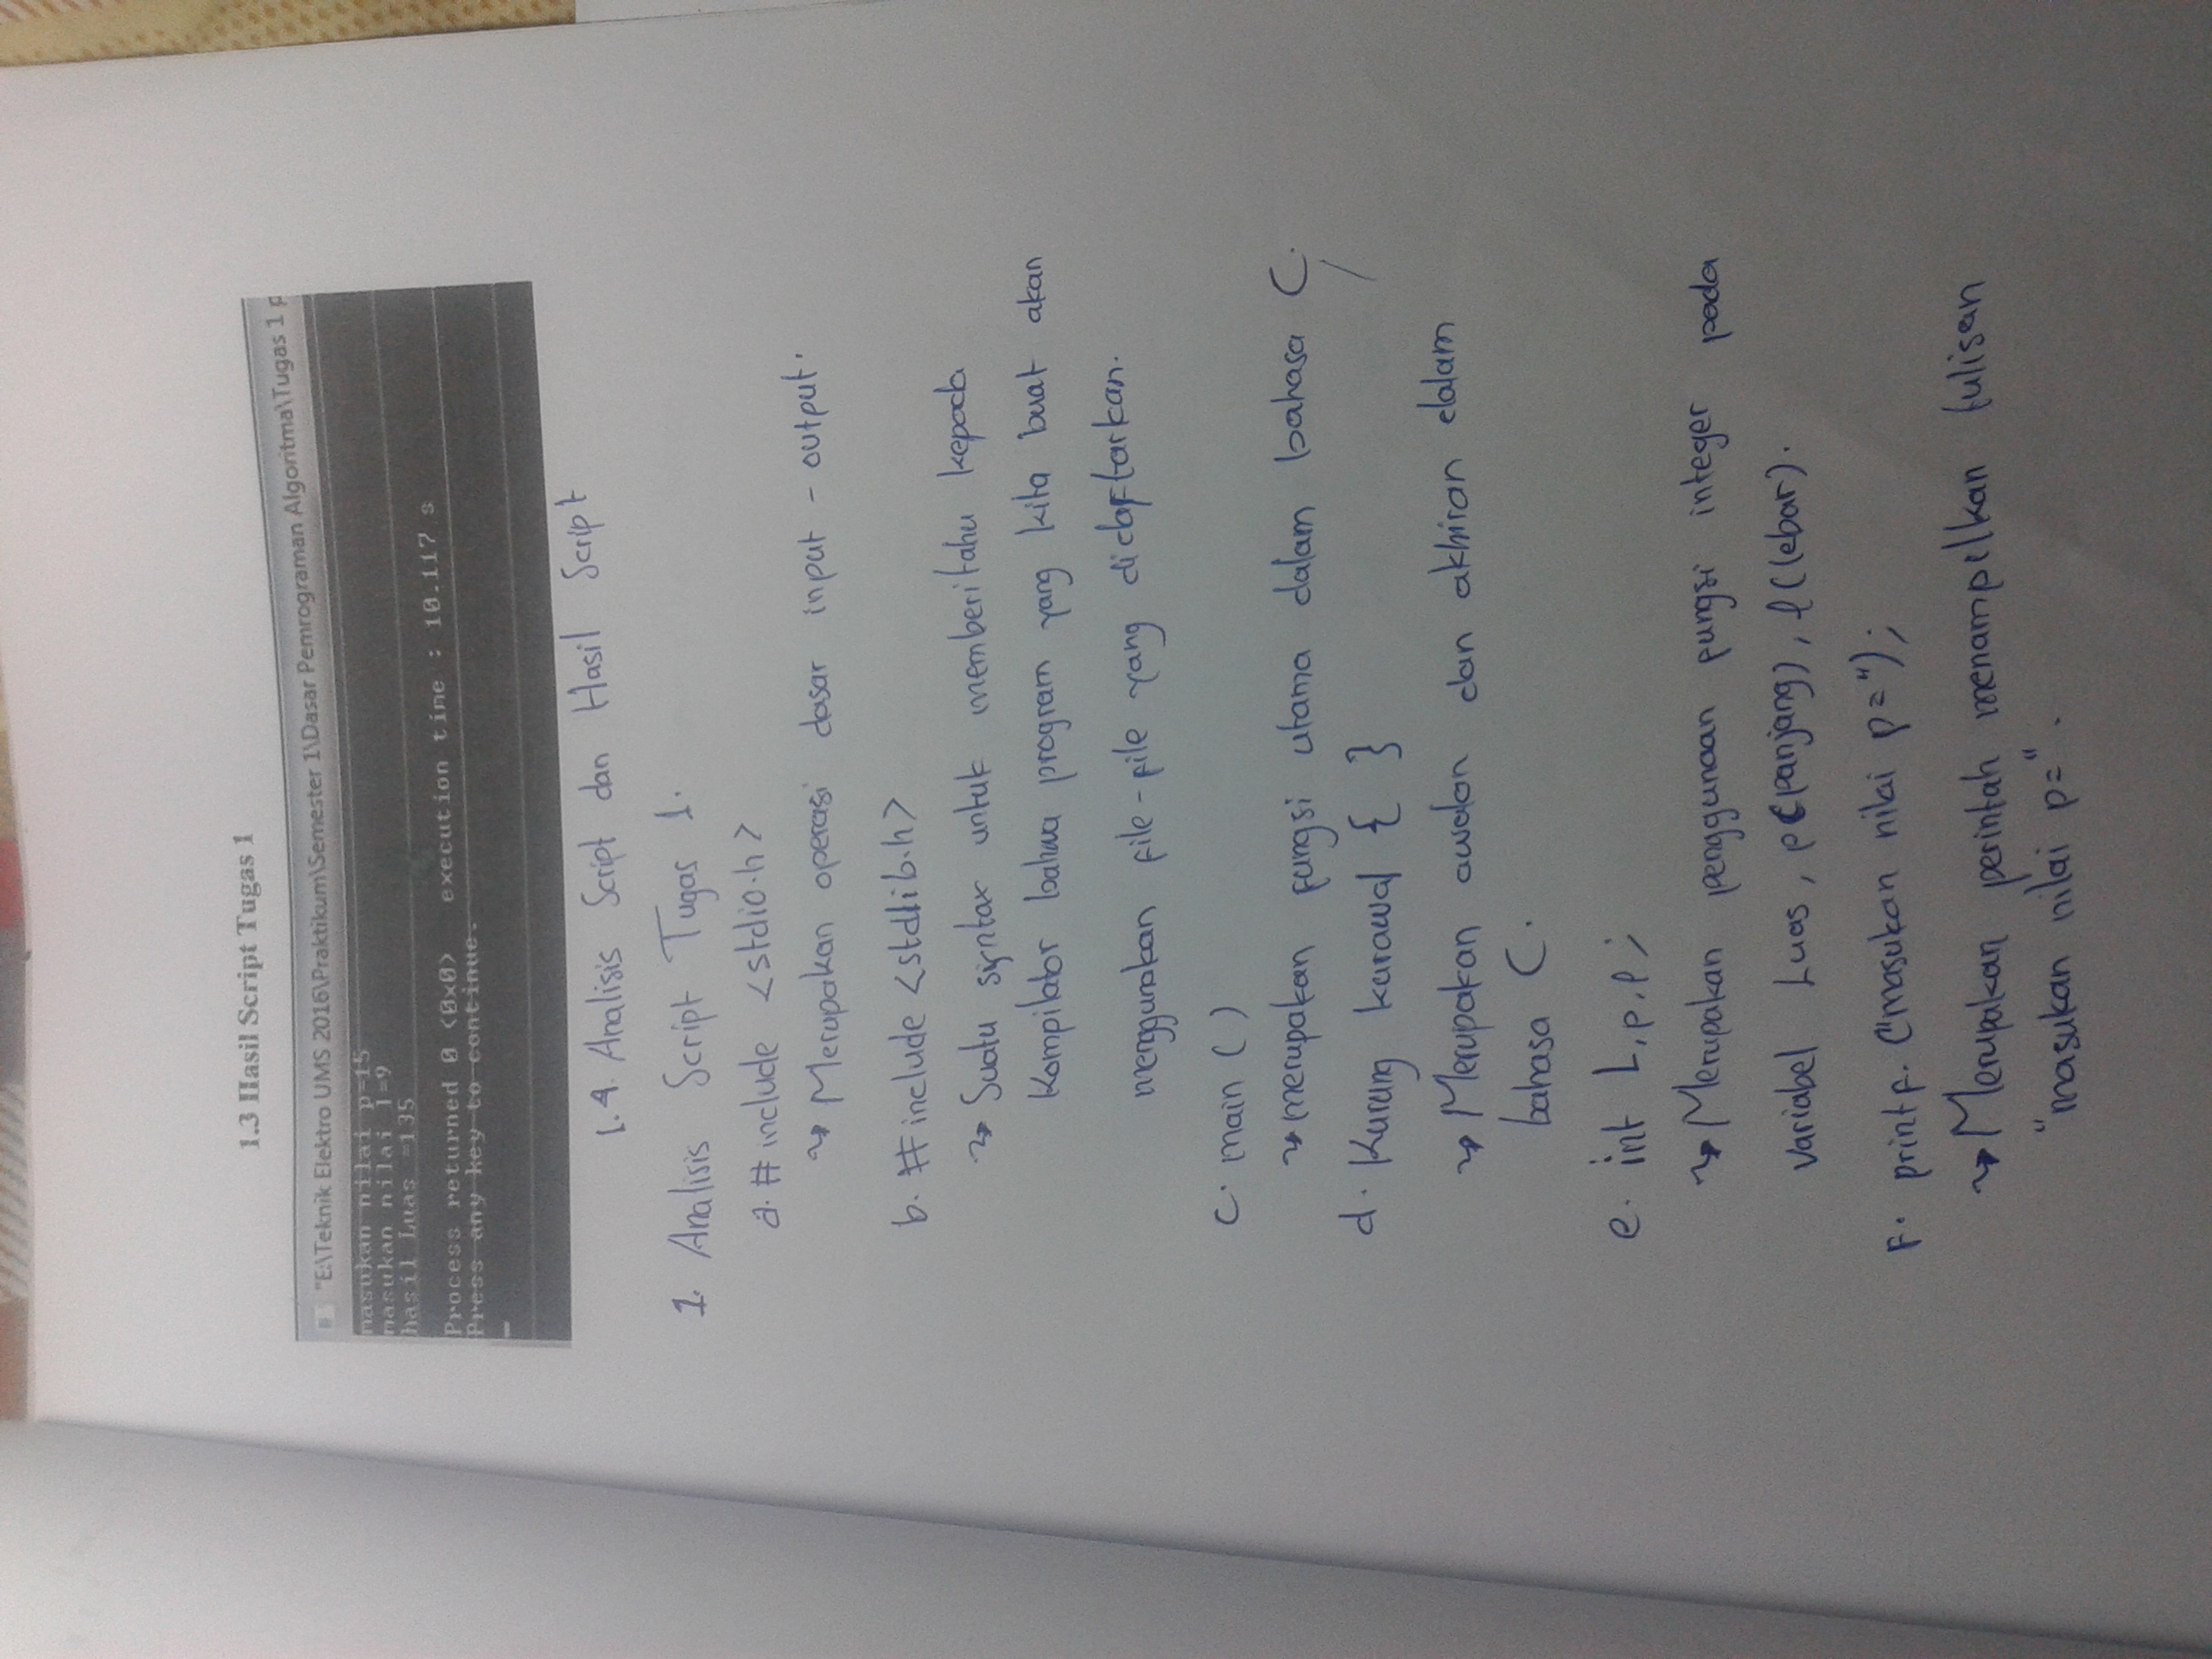 1.3 Hasil Script Tugas 1
"E:\Teknik Elektro UMS 2016\Praktikum\Semester 1\Dasar Pemrograman Algoritma\Tugas 1 p
masukan nilai p=15
masukan nilai l=9
hasil Luas =135
Process returned 0 (0x0)   execution time : 10.117 s
Press any key to continue.
1.4. Analisis Script dan Hasil Script
1. Analisis Script Tugas 1.
a. #include <stdio.h>
Merupakan operasi dasar input - output.
b. #include <stdlib.h>
Suatu syntax untuk memberitahu kepada
Kompilator bahwa program yang kita buat akan
menggunakan file-file yang didaftarkan.
c. main ( )
merupakan fungsi utama dalam bahasa C.
d. Kurung kurawal { }
Merupakan awalan dan akhiran dalam
bahasa C.
e. int L, p, l ;
Merupakan penggunaan fungsi integer pada
variabel Luas, p(panjang), l(lebar).
F. printf. ("masukan nilai p=");
Merupakan perintah menampilkan tulisan
"masukan nilai p=".